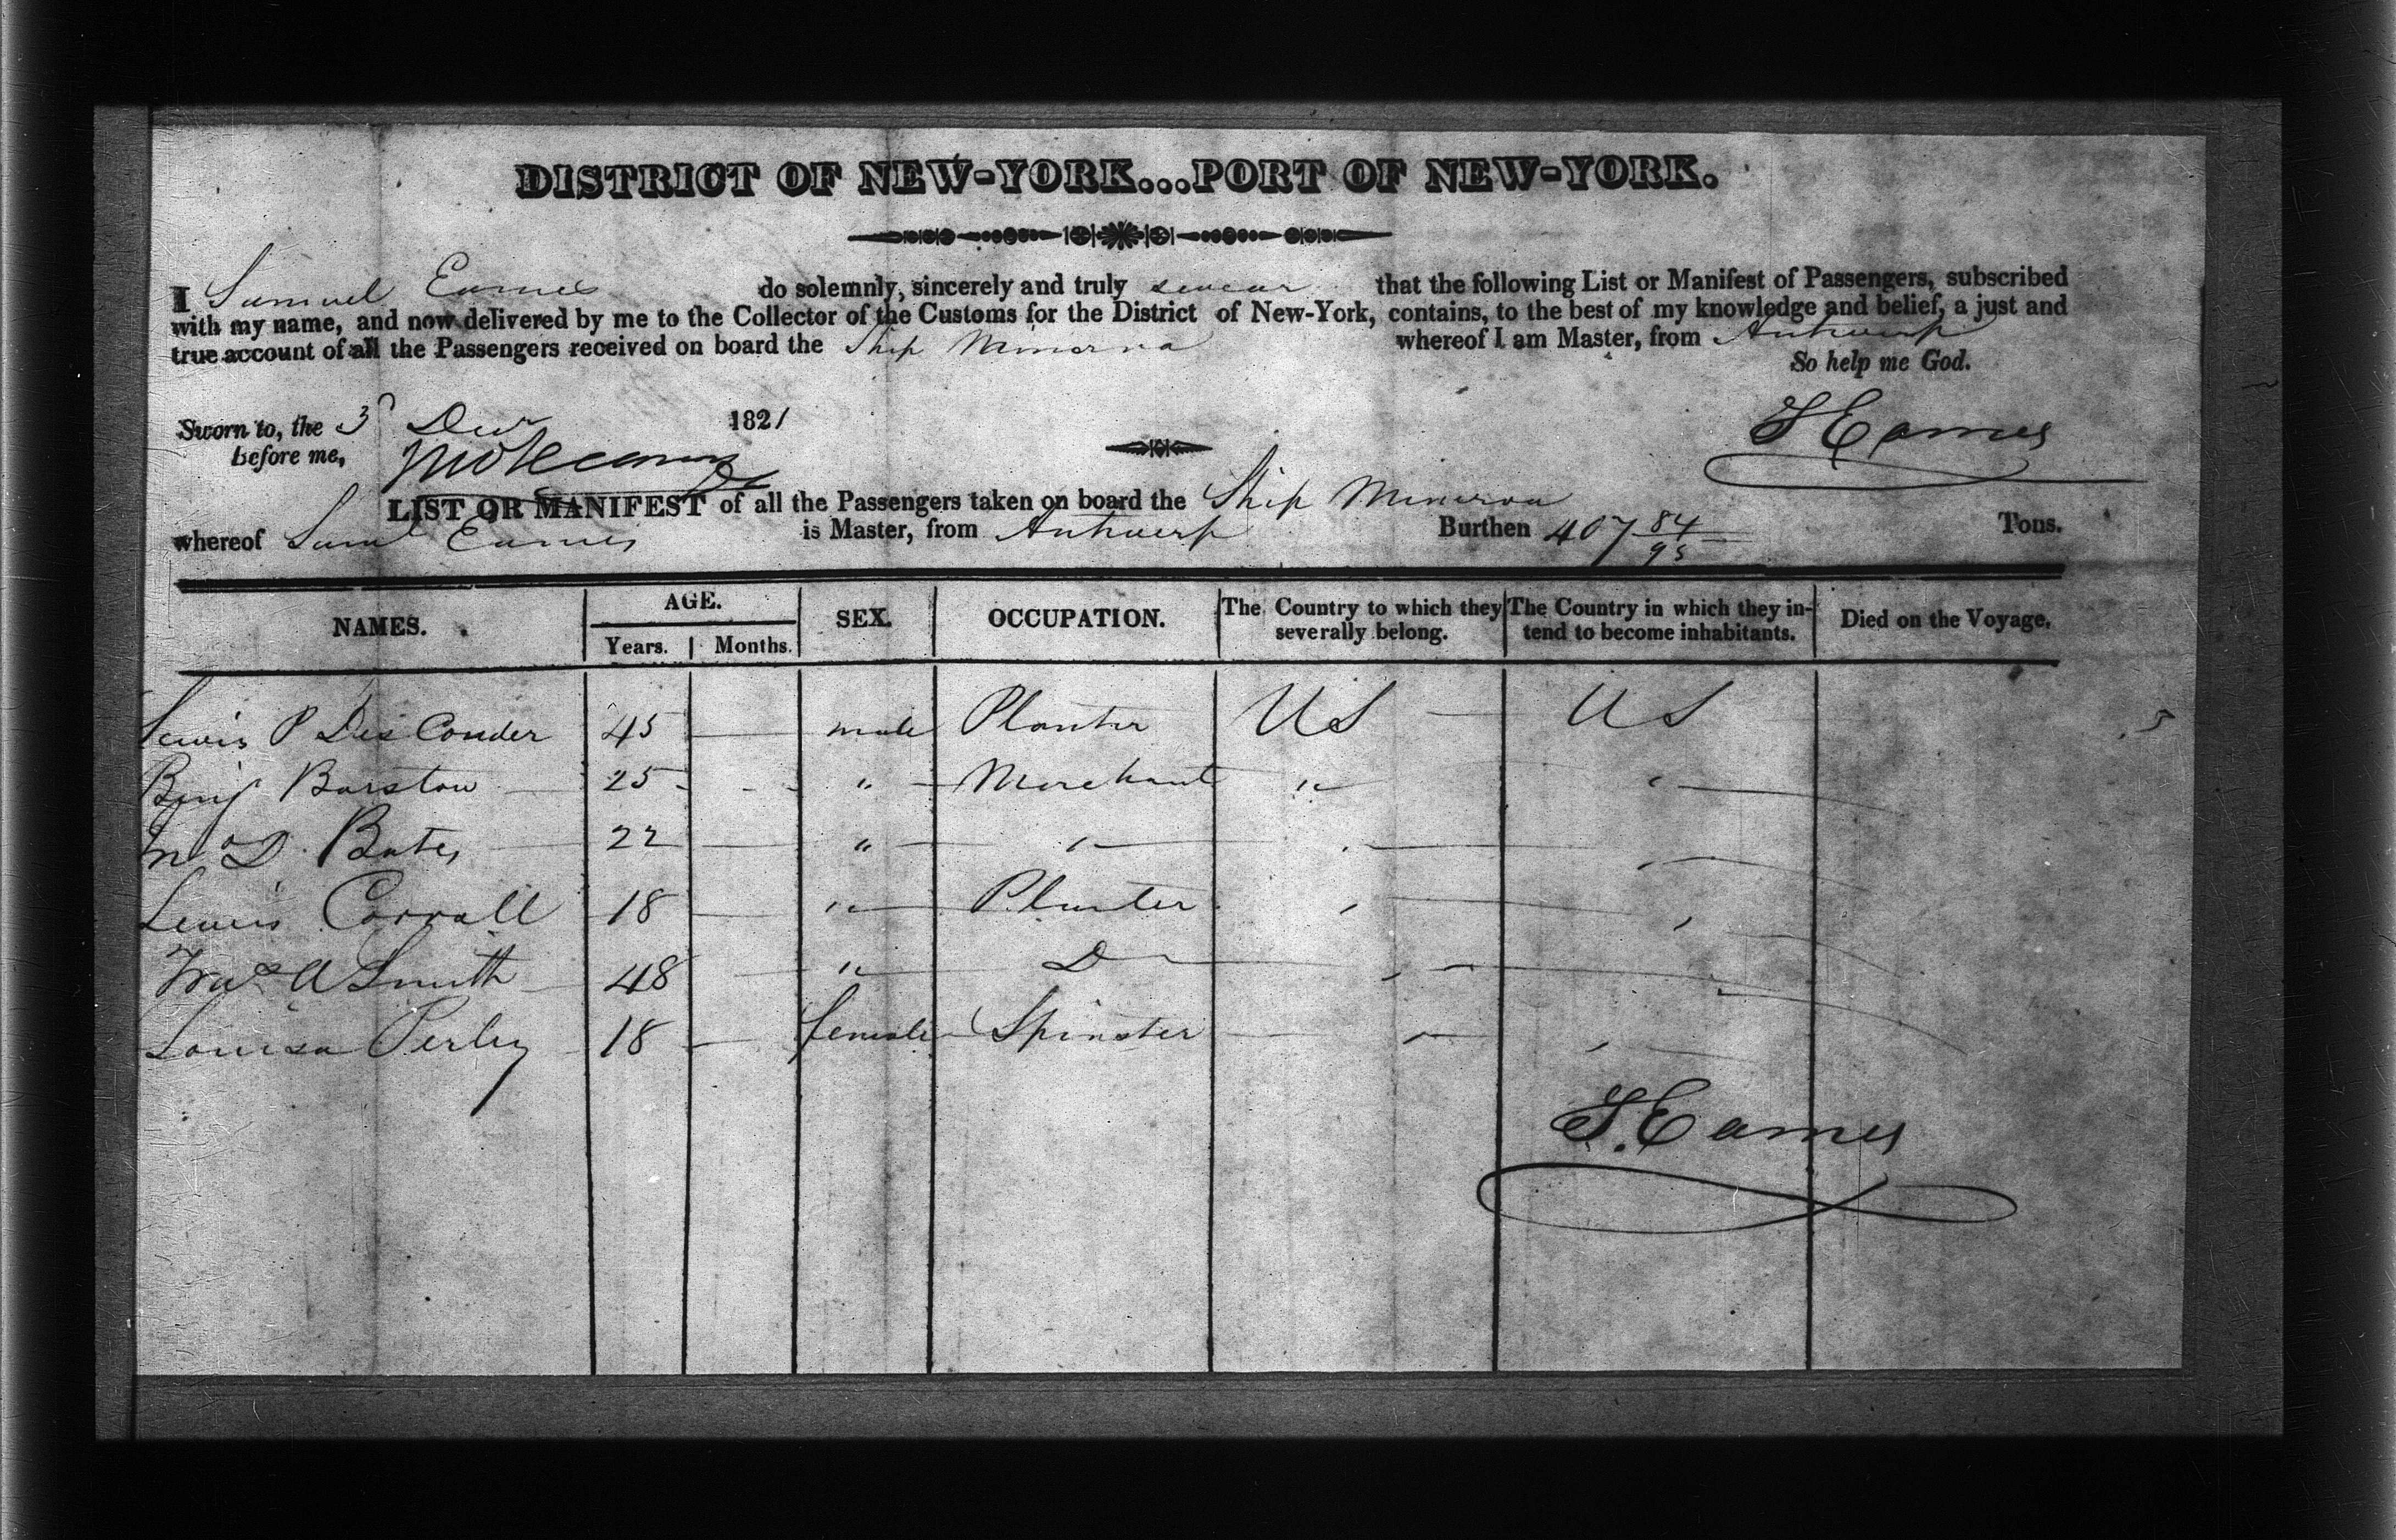 DISTRICT OF NEW-YORK...PORT OF NEW-YORK.
I Samuel Eames do solemnly, sincerely and truly swear that the following List or Manifest of Passengers, subscribed
with my name, and now delivered by me to the Collector of the Customs for the District of New-York, contains, to the best of my knowledge and belief, a just and
true account of all the Passengers received on board the Ship Minerva whereof I am Master, from Antwerp
So help me God.
Sworn to, the 3 1821
before me,
S Eames
LIST OR MANIFEST of all the Passengers taken on board the Ship Minerva
whereof Saml Eames is Master, from Antwerp Burthen 407 84/95 Tons.
NAMES. AGE. SEX. OCCUPATION. The Country to which they severally belong. The Country in which they intend to become inhabitants. Died on the Voyage.
Years. Months.
Lewis P Des Conder 45 male Planter US US
Benj Barstow 25 " Merchant " "
D. Bates 22 " " " "
Lewis Corrall 18 " Planter " "
A Smith 48 " D " "
Louisa Perley 18 female Spinster " "
S. Eames